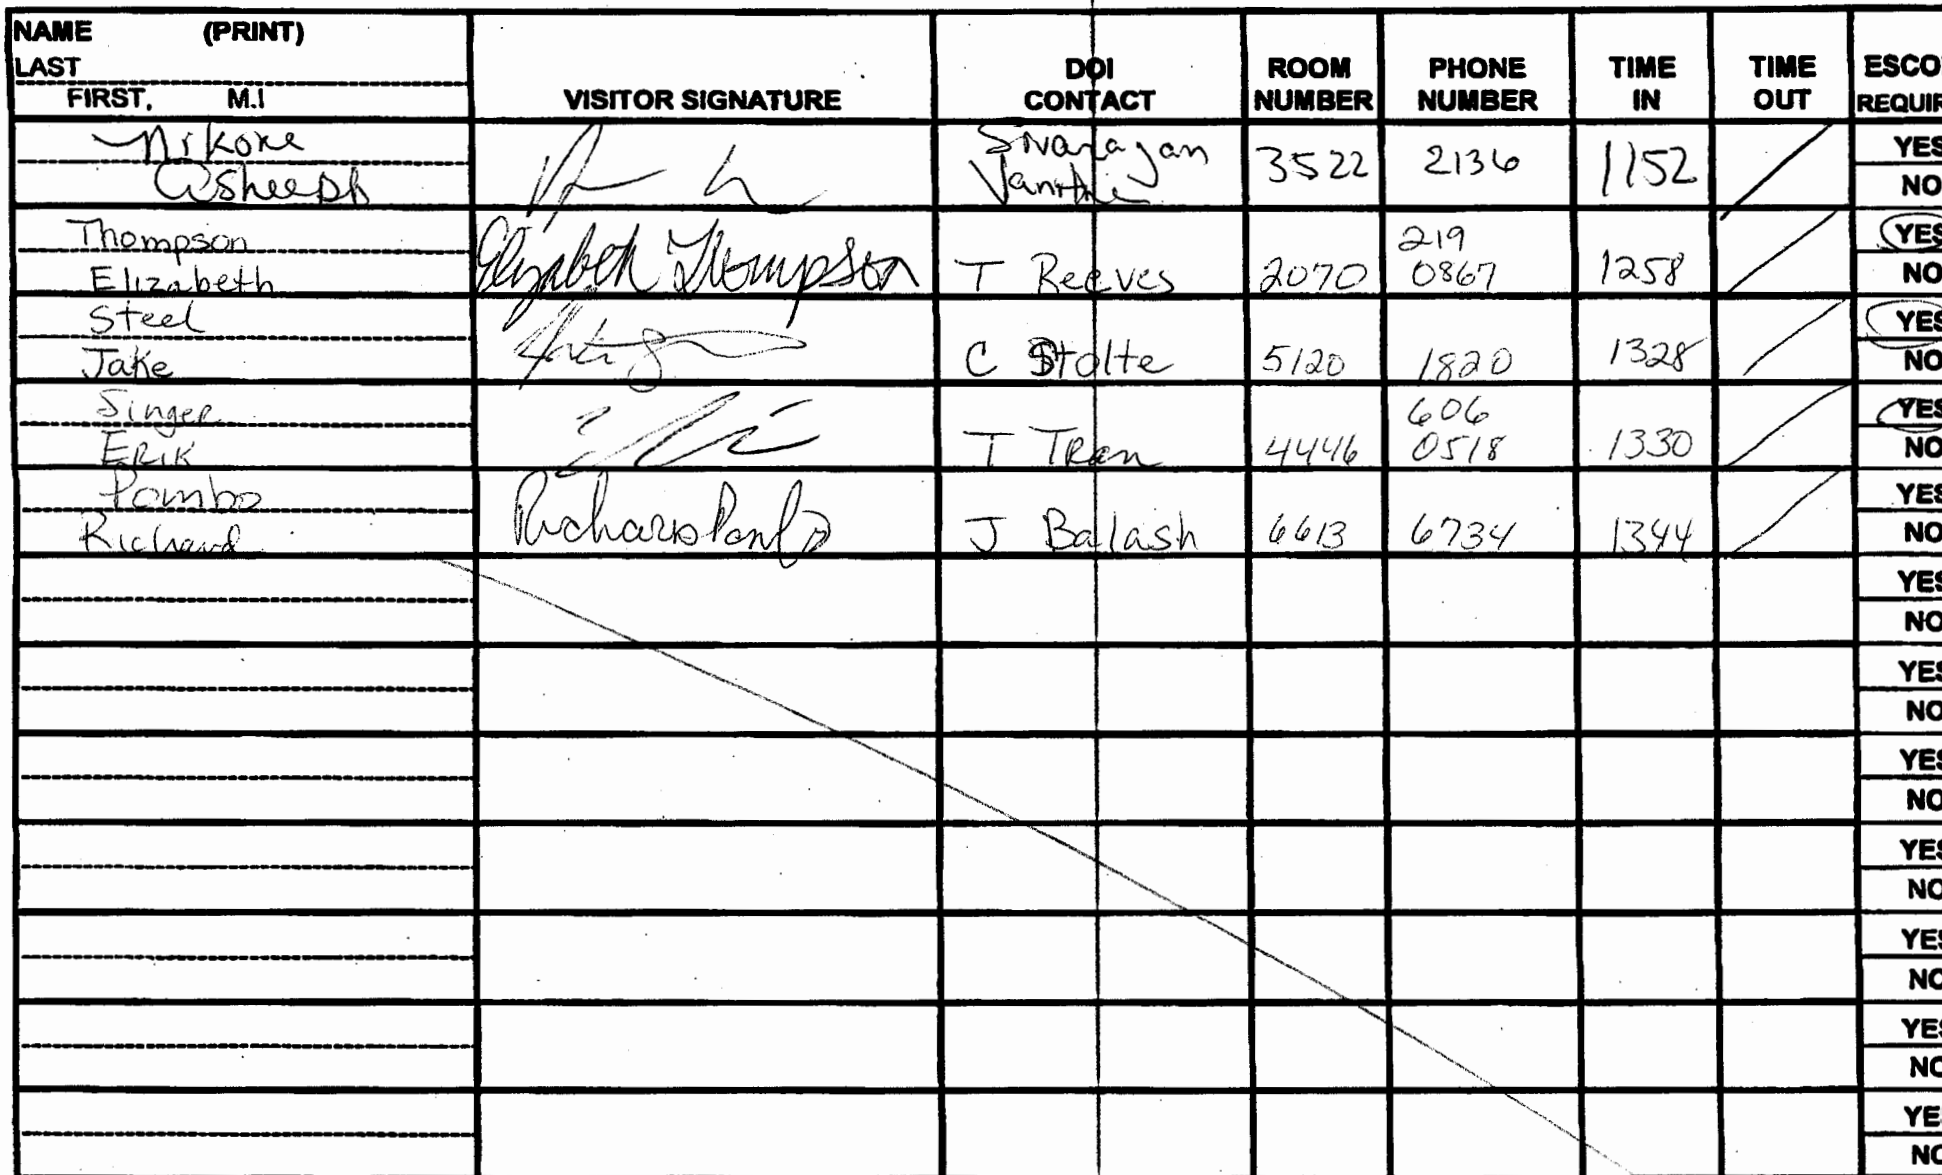 NAME (PRINT)
LAST
FIRST, M.I
VISITOR SIGNATURE
DOI
CONTACT
ROOM
NUMBER
PHONE
NUMBER
TIME
IN
TIME
OUT
ESCO
REQUIR
3522 2136 1152
YES
NO
Thompson
Elizabeth
Elizabeth Thompson
T Reeves
2070
219
0867
1258
YES
NO
Steel
Jake
C Stolte
5120
1820
1328
YES
NO
Singer
ERIK
T Tran
4446
606
0518
1330
YES
NO
Pombo
Richard
Richard Pombo
J Balash
6613
6734
1344
YES
NO
YES
NO
YES
NO
YES
NO
YES
NO
YES
NO
YES
NO
YE
NO